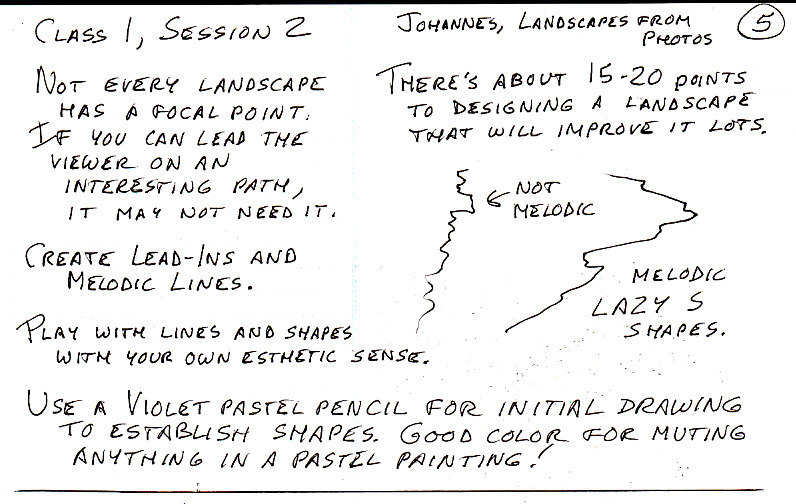 CLASS 1, SESSION 2
JOHANNES, LANDSCAPES FROM
PHOTOS
5
NOT EVERY LANDSCAPE
HAS A FOCAL POINT.
IF YOU CAN LEAD THE
VIEWER ON AN
INTERESTING PATH,
IT MAY NOT NEED IT.
CREATE LEAD-INS AND
MELODIC LINES.
THERE'S ABOUT 15-20 POINTS
TO DESIGNING A LANDSCAPE
THAT WILL IMPROVE IT LOTS.
NOT
MELODIC
MELODIC
LAZY S
SHAPES.
PLAY WITH LINES AND SHAPES
WITH YOUR OWN ESTHETIC SENSE.
USE A VIOLET PASTEL PENCIL FOR INITIAL DRAWING
TO ESTABLISH SHAPES. GOOD COLOR FOR MUTING
ANYTHING IN A PASTEL PAINTING!